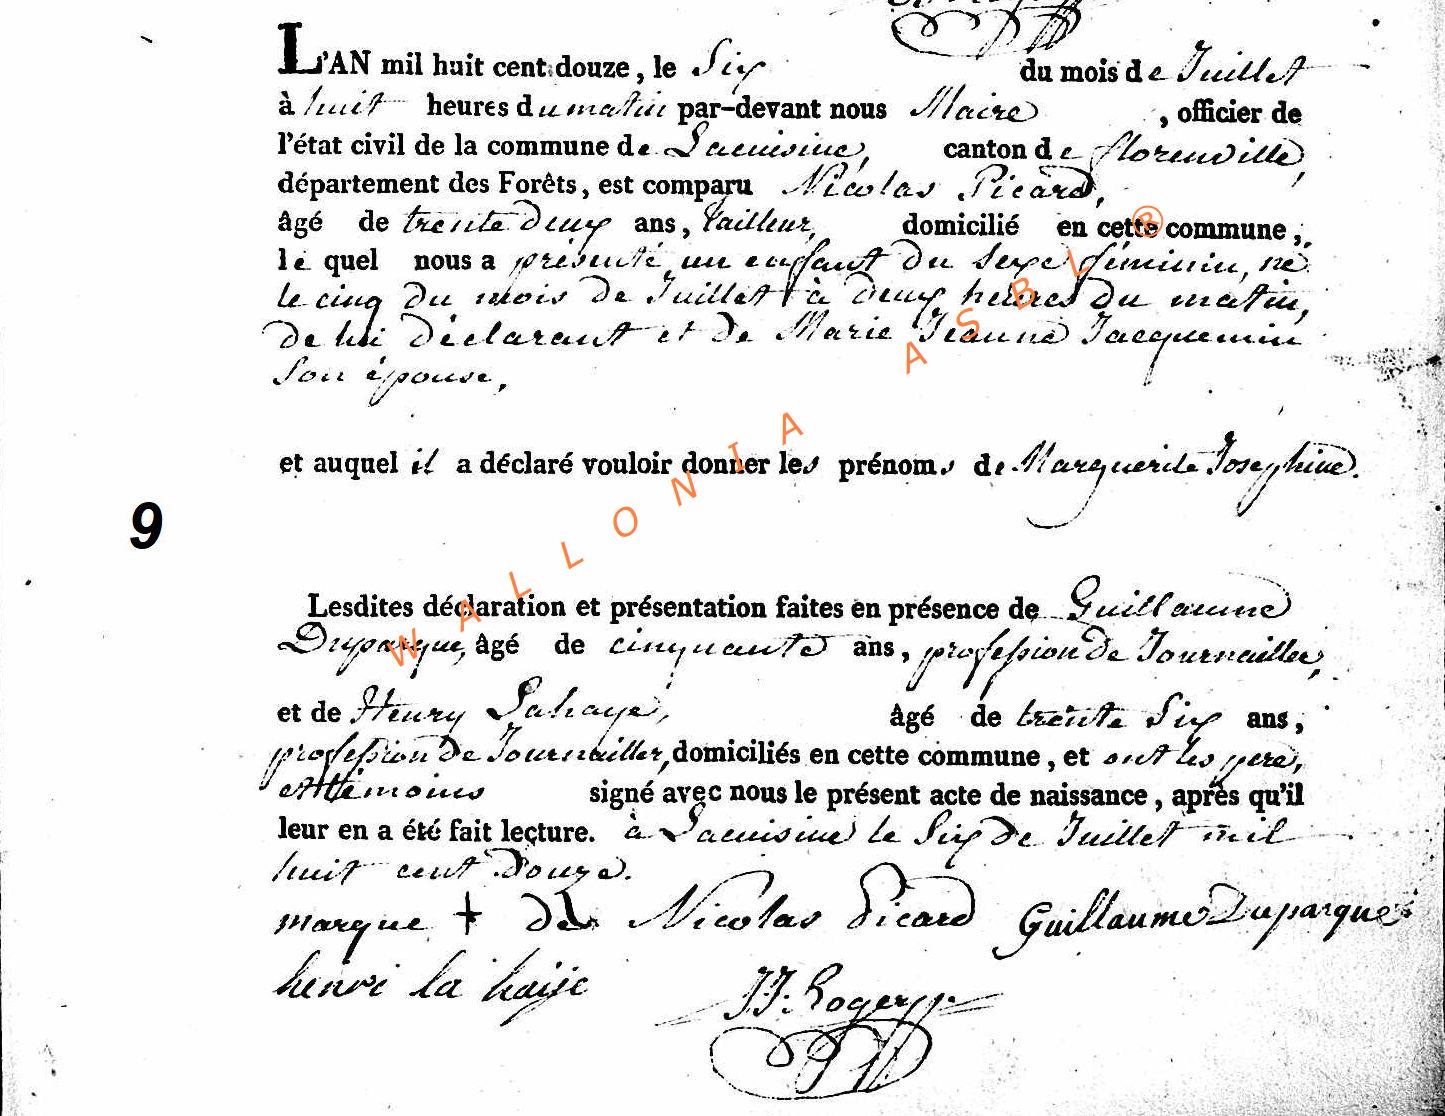 L'AN mil huit cent douze, le Six du mois de Juillet
à huit heures du matin par-devant nous Maire, officier de
l'état civil de la commune de Lacuisine, canton de florenville,
département des Forêts, est comparu Nicolas Picard,
âgé de trente deux ans, tailleur, domicilié en cette commune,
le quel nous a présenté un enfant du sexe féminin, né
le cinq du mois de Juillet à deux heures du matin,
de lui déclarant et de Marie Jeanne Jacquemin
Son épouse,
et auquel il a déclaré vouloir donner les prénoms de Marguerite Josephine.
9
Lesdites déclaration et présentation faites en présence de Guillaume
Duparque, âgé de cinquante ans, profession de Journailler,
et de Henry Lahaye, âgé de trente Six ans,
profession de Journailler, domiciliés en cette commune, et ont les pere,
et témoins signé avec nous le présent acte de naissance, après qu'il
leur en a été fait lecture. à Lacuisine le Six de Juillet mil
huit cent douze.
marque + de Nicolas Picard Guillaume Duparque
henri la haije
JJ. Rogery
WALLONIA ASBL ®